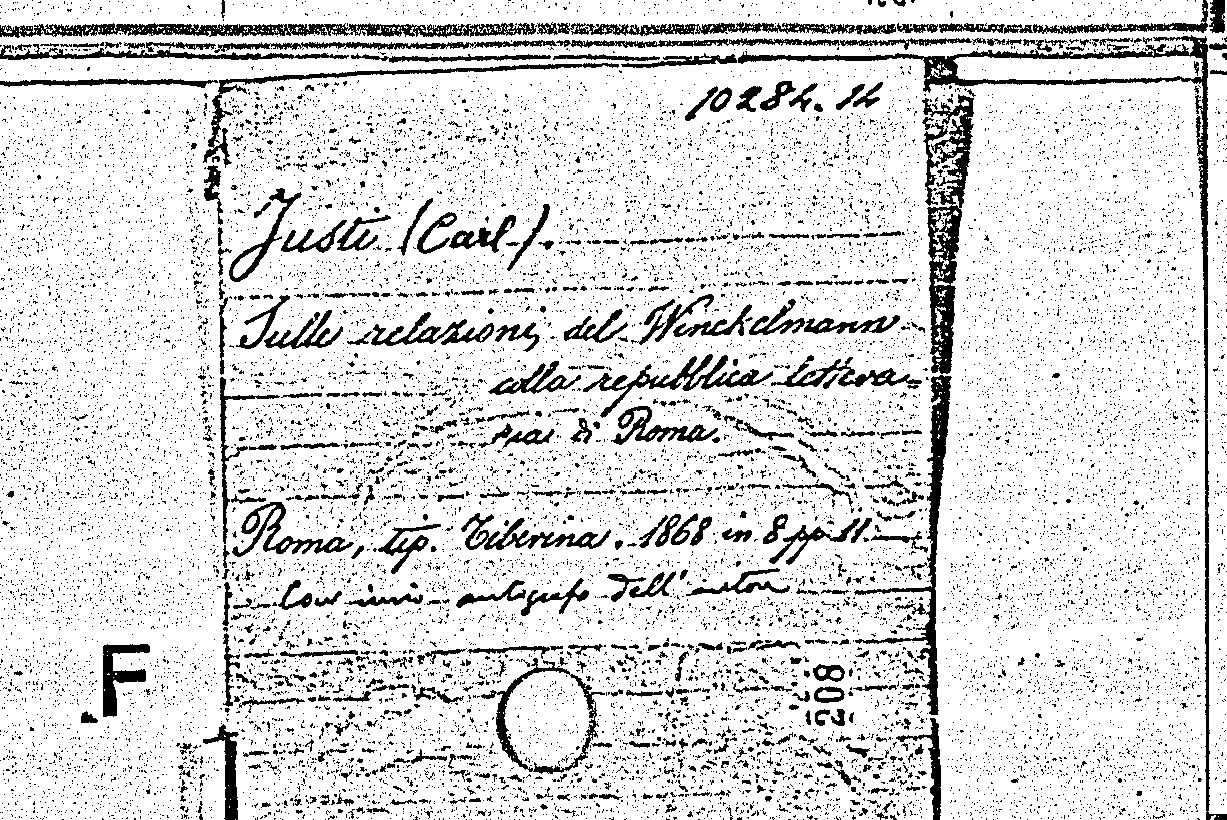 10284.14
Justi (Carl).
Sulle relazioni del Winckelmann
colla repubblica lettera=
ria di Roma.
Roma, tip. Tiberina. 1868 in 8 pp 11.
Con invio autografo dell'autore
F
208